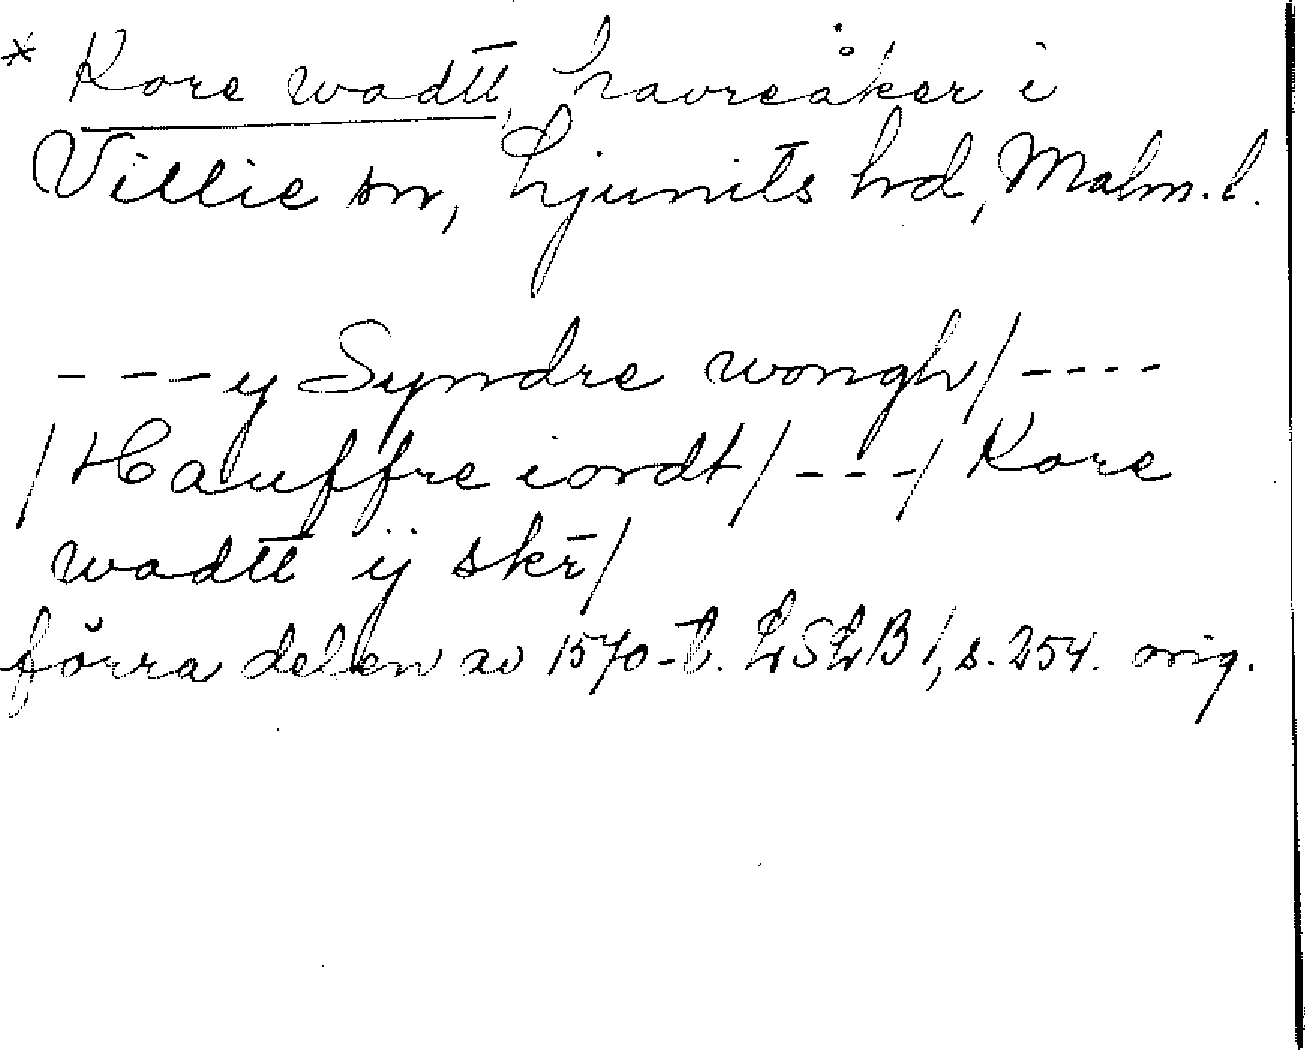 * Kore wadtt, havreåker i
Villie sn, Ljunits hd, Malm. l.
- - - y Syndre wongh/ - - - -
/ Hauffre iordt/ - - - / Kore
wadtt ij skr/
förra delen av 1570-t. LSLB 1, s. 254. orig.